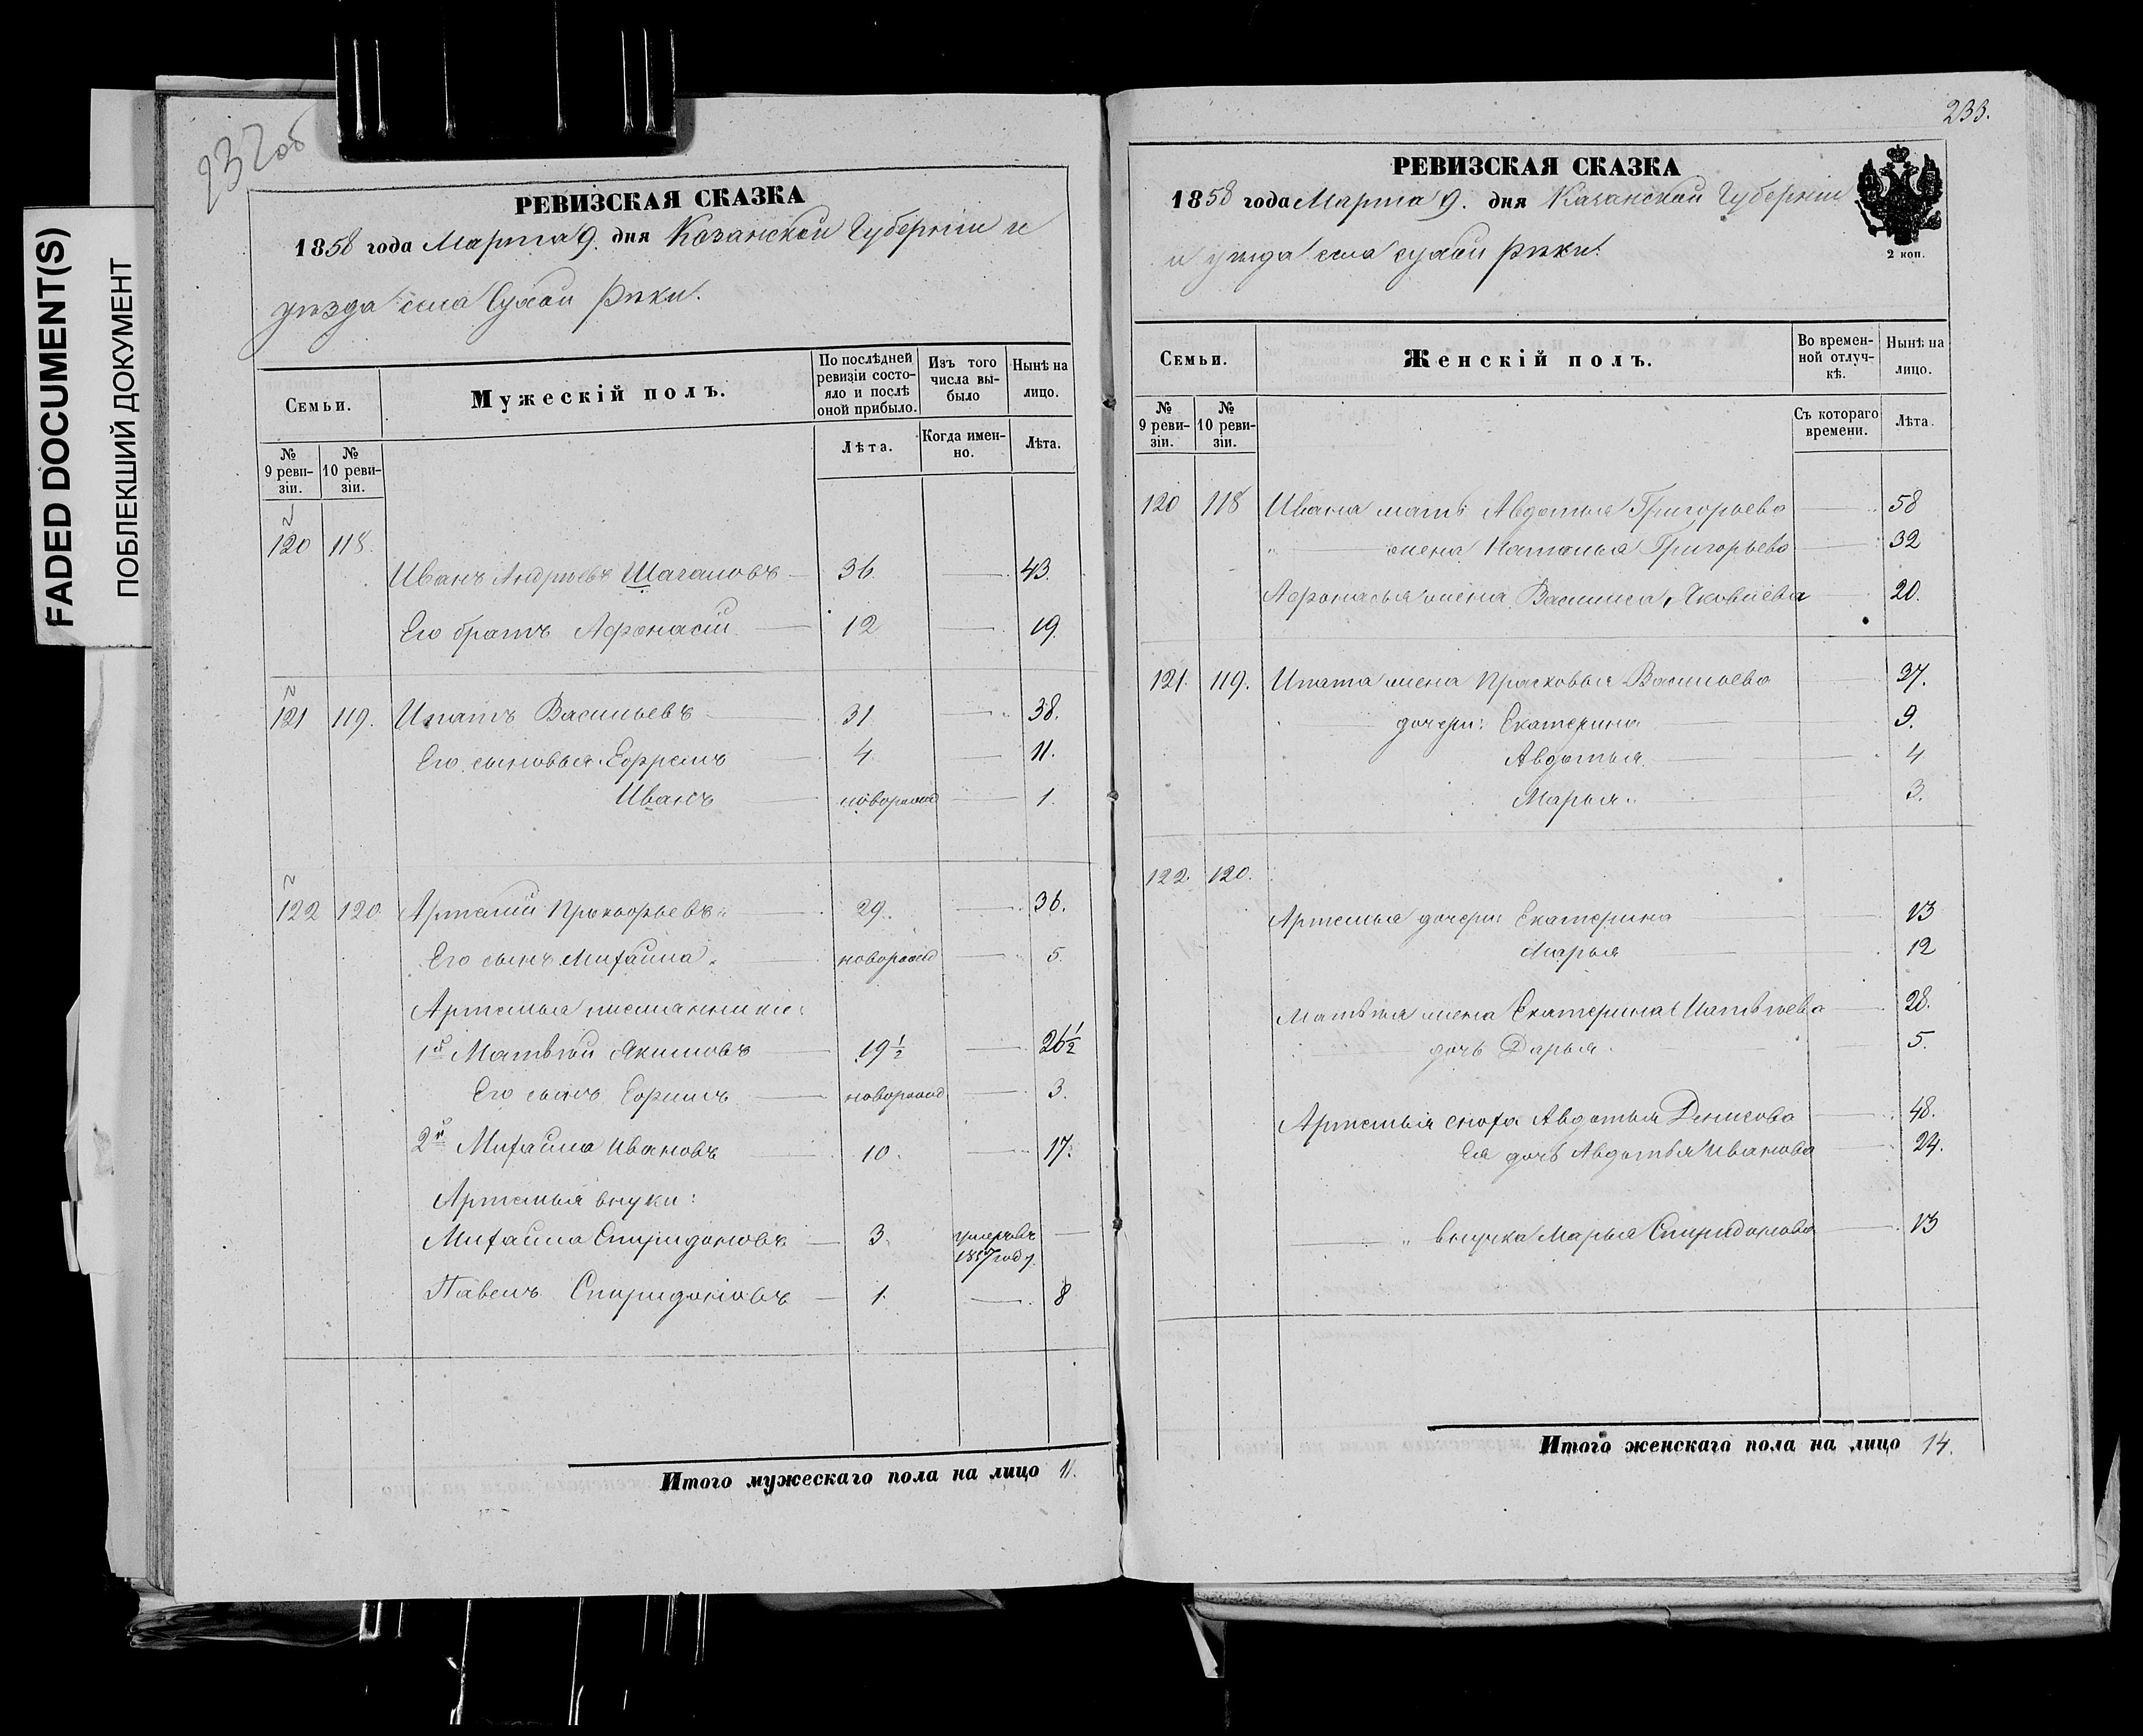 FADED DOCUMENT(S)
ПОБЛЕКШИЙ ДОКУМЕНТ
232об
РЕВИЗСКАЯ СКАЗКА
1858 года Марта 9. дня Казанской Губерніи и
уѣзда села Сухой Рѣки.
Семьи.
Мужескій полъ.
По послѣдней ревизіи состояло и послѣ оной прибыло.
Изъ того числа выбыло
Нынѣ на лицо.
№ 9 ревизіи.
№ 10 ревизіи.
Лѣта.
Когда именно.
Лѣта.
120 118.
Иванъ Андреевъ Шагаловъ 36. 43.
Его братъ Афонасій 12 19.
121 119. Ипатъ Васильевъ 31 38.
Его сыновья: Ефремъ 4. 11.
Иванъ новорожд 1.
122 120 Артемій Прокофьевъ 29. 36.
Его сынъ Михайла новорожд 5.
Артемья племянники:
1й Матвѣй Якимовъ 19 1/2 26 1/2
Его сынъ Ефимъ новорожд 3.
2й Михайла Ивановъ 10. 17.
Артемья внуки:
Михайла Спиридоновъ 3. умеръ въ 1857 году.
Павелъ Спиридоновъ 1. 8
Итого мужескаго пола на лицо 11.
233.
РЕВИЗСКАЯ СКАЗКА
1858 года Марта 9. дня Казанской Губерніи
и уѣзда села сухой рѣки.
2 коп.
Семьи.
Женскій полъ.
Во временной отлучкѣ.
Нынѣ на лицо.
№ 9 ревизіи.
№ 10 ревизіи.
Съ котораго времени.
Лѣта.
120 118 Ивана мать Авдотья Григорьева 58
" жена Наталья Григорьева 32
Афонасья жена Василиса Яковлева 20.
121. 119. Ипата жена Прасковья Васильева 37.
дочери: Екатерина 9.
Авдотья 4
Марья 3.
122. 120.
Артемья дочери: Екатерина 13
Марья 12
Матвѣя жена Екатерина 28.
дочь Дарья 5.
Артемья сноха Авдотья Денисова 48.
Ея дочь Авдотья Иванова 24.
" внучка Марья Спиридонова 13
Итого женскаго пола на лицо 14.